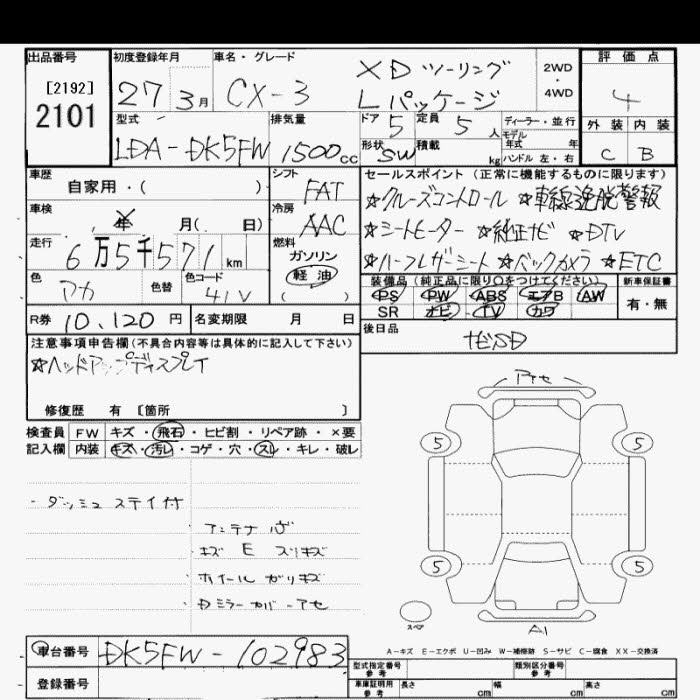 出品番号
[2192]
2101
初度登録年月
27 3月
車名・グレード
CX-3
XD ツーリング
Lパッケージ
2WD
・
4WD
評価点
4
外装 内装
C B
型式
LDA-DK5FW
排気量
1500cc
ドア 5
定員 5人
形状 SW
積載 kg
ディーラー・並行
モデル
年式 年
ハンドル 左・右
車歴
自家用・( )
シフト
FAT
冷房
AAC
燃料
ガソリン
軽油
( )
車検
年 月( 日)
走行
6万5千571km
色
アカ
色替
色コード
41V
R券 10,120円
名変期限 月 日
セールスポイント(正常に機能するものに限ります)
☆クルーズコントロール ☆車線逸脱警報
☆シートヒーター ☆純正ナビ ☆DTV
☆ハーフレザーシート ☆バックカメラ ☆ETC
装備品(純正品に限り○をつけてください)
PS PW ABS エアB AW
SR ナビ TV カワ
新車保証書
有・無
後日品
ナビSD
注意事項申告欄(不具合内容等は具体的に記入して下さい)
☆ヘッドアップディスプレイ
修復歴 有 [箇所 ]
検査員 FW キズ・飛石・ヒビ割・リペア跡・×要
記入欄 内装 キズ・汚レ・コゲ・穴・スレ・キレ・破レ
・ダッシュ ステイ付
アンテナ
・キズ E スリキズ
・ホイール ガリキズ
・Dミラーカバーアセ
アセ
5
5
5
5
スペア
A1
A-キズ E-エクボ U-凹み W-補修跡 S-サビ C-腐食 XX-交換済
車台番号 DK5FW-102983
登録番号
型式指定番号
参考
類別区分番号
参考
車庫証明用
参考
長さ cm 幅 cm 高さ cm